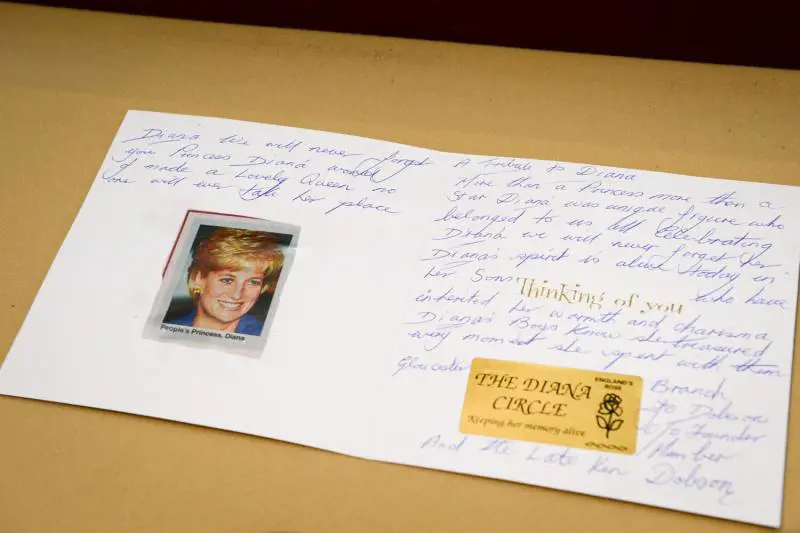 Diana We will never forget
you Princess Diana would
of made a Lovely Queen no
one will ever take her place
People's Princess, Diana
A Tribute to Diana
More than a Princess more than a
Star Diana was unique figure who
belonged to us all Celebrating
Diana we will never forget her
Diana's spirit is alive today in
her Sons Thinking of you who have
inherited her warmth and charisma
Diana's Boys Know she treasured
every moment she spent with them
Gloucester Branch
THE DIANA CIRCLE
Keeping her memory alive
ENGLAND'S ROSE
Jo Dobson
Founder
Member
And the Late Ken Dobson